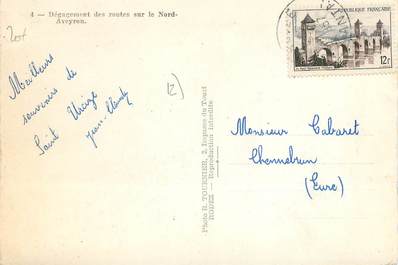 4 — Dégagement des routes sur le Nord-
Aveyron.
Meilleurs
souvenirs de
Saint Urcize
Jean-Claude
Photo R. TOURNIER, 2, Impasse du Touat
RODEZ — Reproduction interdite
REPUBLIQUE FRANÇAISE
12F
Monsieur Cabaret
Chennebrun
(Eure)